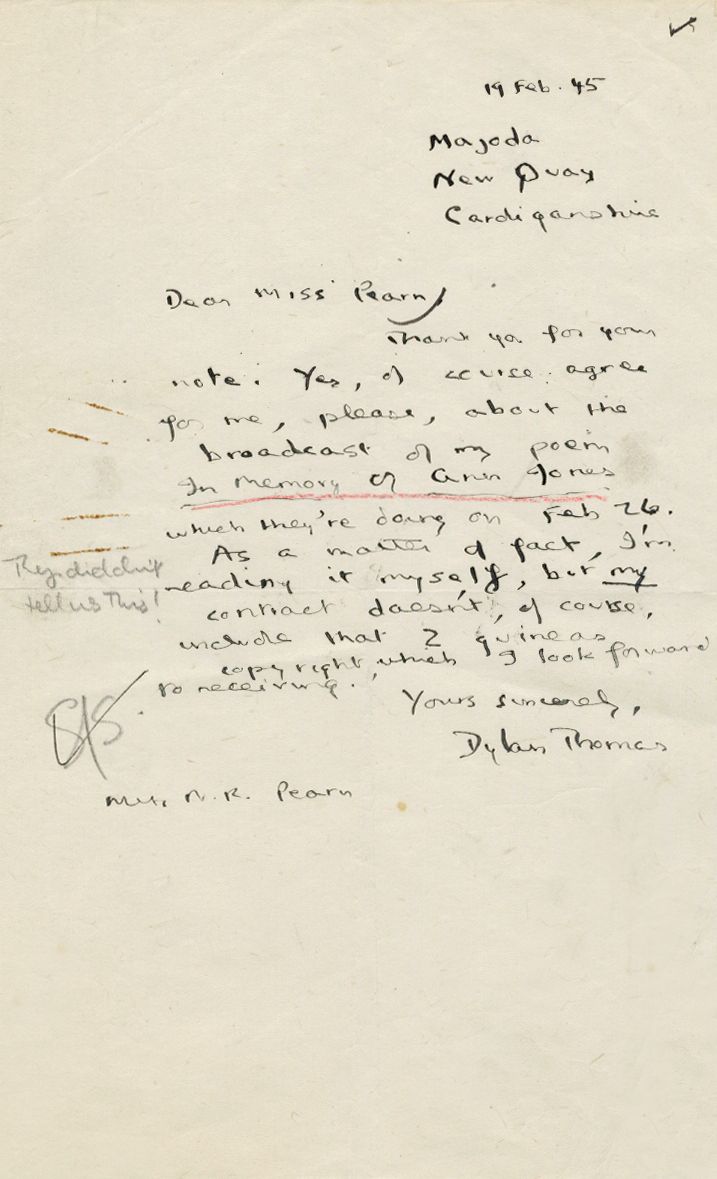 19 Feb. 45
Majoda
New Quay
Cardiganshire
Dear Miss Pearn,
Thank you for your
note. Yes, of course agree
for me, please, about the
broadcast of my poem
In Memory of Ann Jones
which they're doing on Feb 26.
As a matter of fact, I'm
reading it myself, but my
contract doesn't, of course,
include that 2 guineas
copyright, which I look forward
to receiving.
They didn't
tell us this!
Yours sincerely,
Dylan Thomas
Miss N. R. Pearn